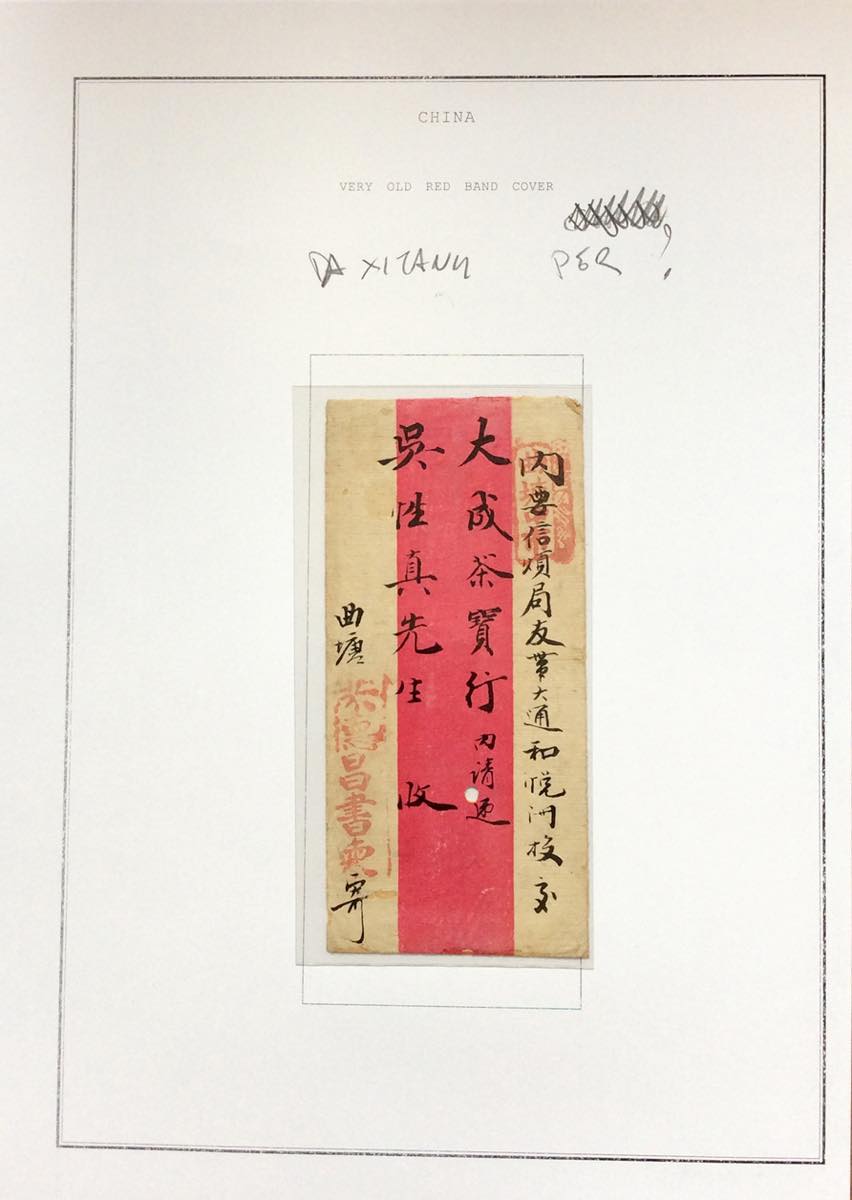 CHINA
VERY OLD RED BAND COVER
DA XIZANU PER ?
內要信煩局友帶大通和悅洲校交
大成茶寶行內請
吳性真先生 收
曲塘 德昌書柬 寄